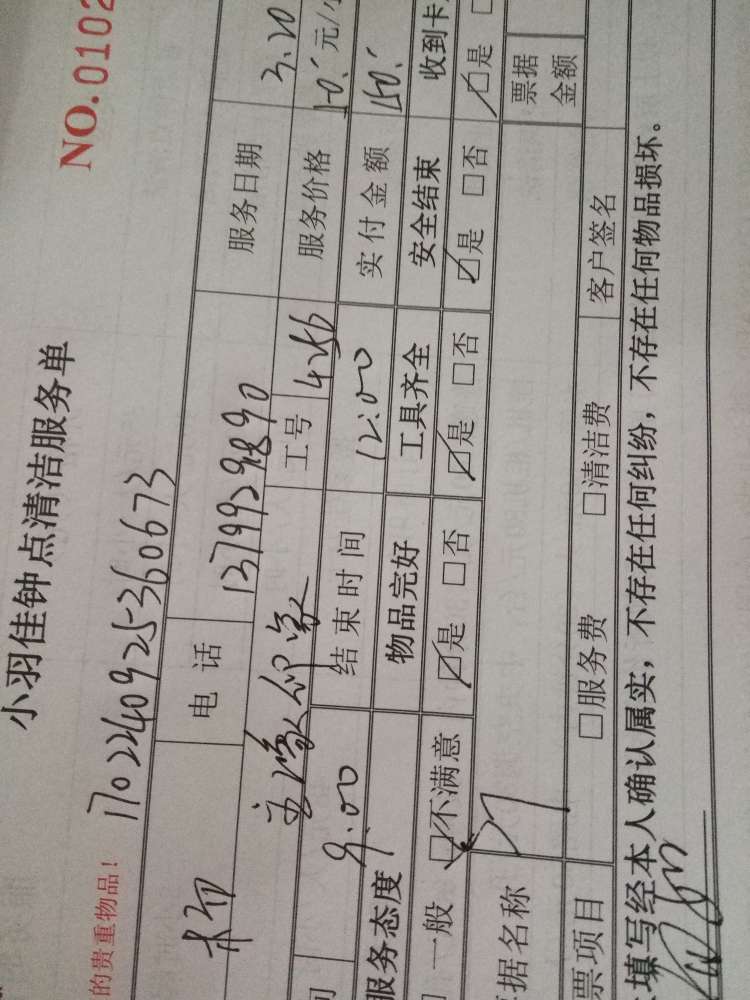 小羽佳钟点清洁服务单
NO.0102
的贵重物品！ 1702240925360673
电话 13799298890 服务日期 3.20
工号 服务价格 50. 元/
9:00 结束时间 12:00 实付金额 150.
服务态度 物品完好 工具齐全 安全结束 收到卡
一般 □不满意 ☑是 □否 ☑是 □否 ☑是 □否 ☑是
据名称 票据金额
票项目 □服务费 □清洁费 客户签名
填写经本人确认属实，不存在任何纠纷，不存在任何物品损坏。